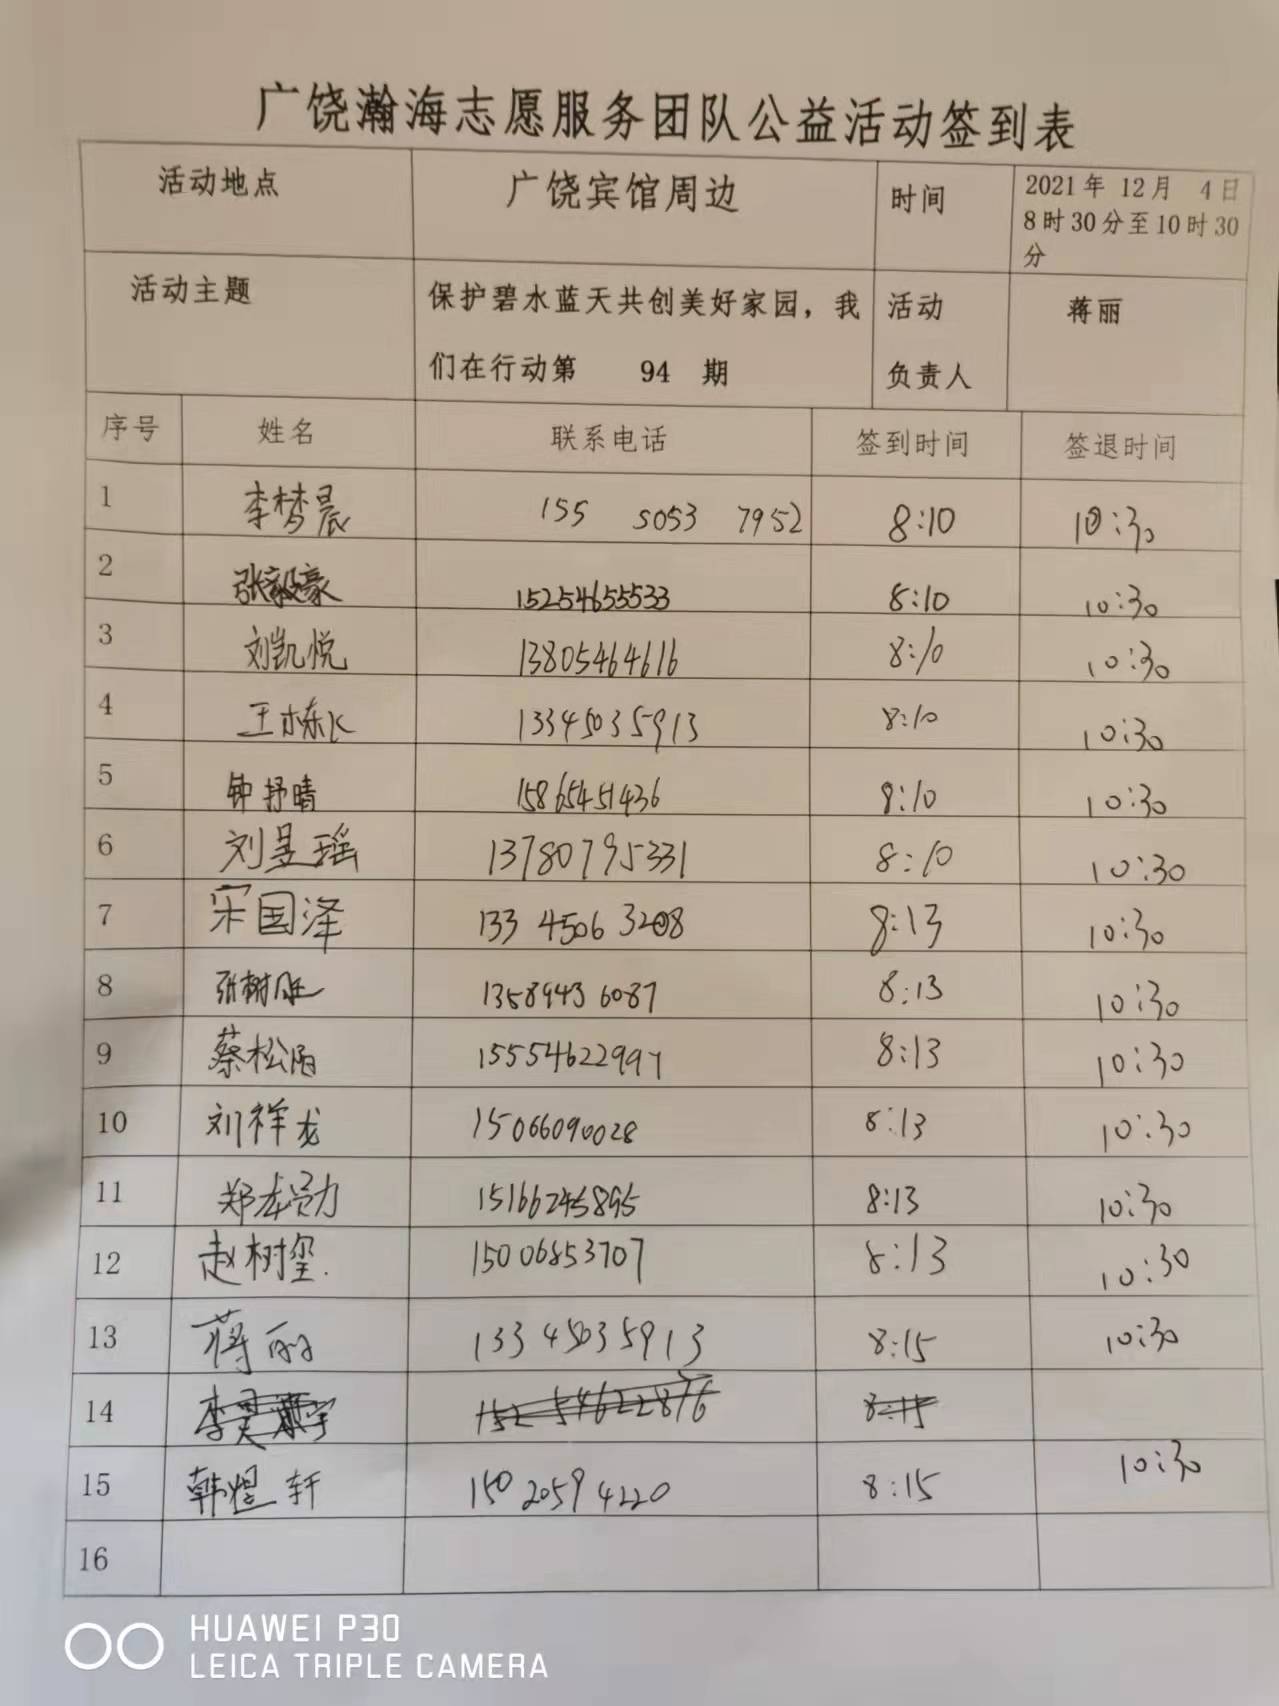 广饶瀚海志愿服务团队公益活动签到表
活动地点 广饶宾馆周边 时间 2021年 12月 4日
8时30分至10时30
分
活动主题 保护碧水蓝天共创美好家园，我 活动 蒋丽
们在行动第 94 期 负责人
序号 姓名 联系电话 签到时间 签退时间
1 李梦晨 155 5053 7952 8:10 10:30
2 张毅豪 15254655533 8:10 10:30
3 刘凯悦 13805464616 8:10 10:30
4 王栋 13345035913 8:10 10:30
5 钟抒晴 15865451436 8:10 10:30
6 刘昱瑶 13780795331 8:10 10:30
7 宋国泽 133 4506 3208 8:13 10:30
8 张树 1358943 6087 8:13 10:30
9 蔡松阳 15554622997 8:13 10:30
10 刘祥龙 15066090028 8:13 10:30
11 郑 8:13 10:30
12 赵树玺. 15006853707 8:13 10:30
13 蒋丽 133 45035913 8:15 10:30
14 152 54622876 8:15
15 韩煜轩 150 2059 4220 8:15 10:30
16
HUAWEI P30
LEICA TRIPLE CAMERA